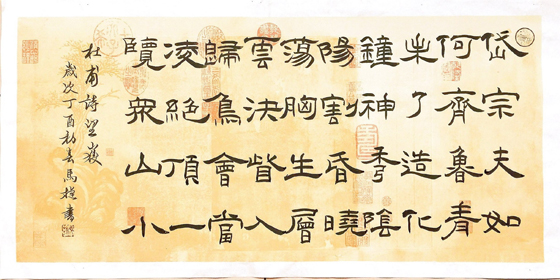 岱宗夫如
何齊魯青
未了造化
鐘神秀陰
陽割昏曉
蕩胸生層
雲決眥入
歸鳥會當
凌絕頂一
覽衆山小
杜甫詩望嶽
歲次丁酉春馬書